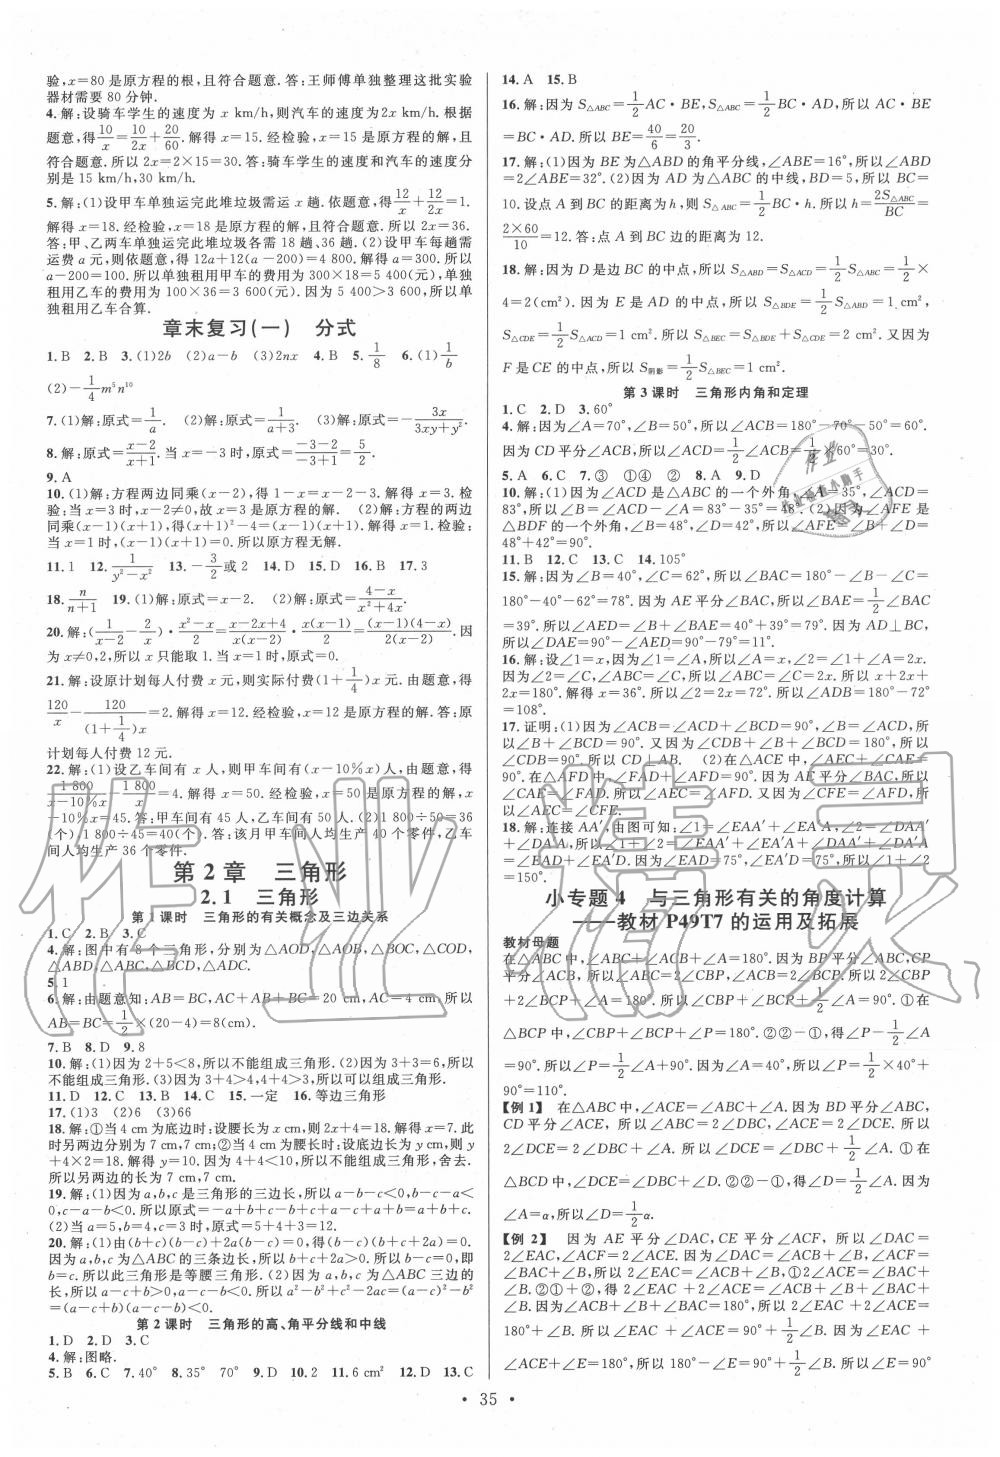 验,x=80是原方程的根,且符合题意.答:王师傅单独整理这批实验
器材需要80分钟.
4.解:设骑车学生的速度为x km/h,则汽车的速度为2x km/h.根据
题意,得10/x=10/2x+20/60.解得x=15.经检验,x=15是原方程的解,且
符合题意.所以2x=2×15=30.答:骑车学生的速度和汽车的速度分
别是15 km/h,30 km/h.
5.解:(1)设甲车单独运完此堆垃圾需运x趟.依题意,得12/x+12/2x=1.
解得x=18.经检验,x=18是原方程的解,且符合题意.所以2x=36.
答:甲、乙两车单独运完此堆垃圾各需18趟、36趟.(2)设甲车每趟需
运费a元,则依题意,得12a+12(a-200)=4 800.解得a=300.所以
a-200=100.所以单独租用甲车的费用为300×18=5 400(元),单
独租用乙车的费用为100×36=3 600(元).因为5 400>3 600,所以单
独租用乙车合算.
章末复习(一) 分式
1.B 2.B 3.(1)2b (2)a-b (3)2nx 4.B 5.1/8 6.(1)1/b
(2)-1/4m⁵n¹⁰
7.(1)解:原式=1/a. (2)解:原式=1/(a+3). (3)解:原式=-3x/(3xy+y²).
8.解:原式=(x-2)/(x+1).当x=-3时,原式=(-3-2)/(-3+1)=5/2.
9.A
10.(1)解:方程两边同乘(x-2),得1-x=x-2-3.解得x=3.检
验:当x=3时,x-2≠0,故x=3是原方程的解. (2)解:方程的两边
同乘(x-1)(x+1),得(x+1)²-4=(x-1)(x+1).解得x=1.检验:
当x=1时,(x-1)(x+1)=0.所以原方程无解.
11.1 12.1/(y²-x²) 13.-3/2或2 14.D 15.D 16.B 17.3
18.n/(n+1) 19.(1)解:原式=x-2. (2)解:原式=(4-x)/(x²+4x).
20.解:(1/(x-2)-2/x)·(x²-x)/2=(x-2x+4)/(x(x-2))·x(x-1)/2=(x-1)(4-x)/(2(x-2)).因
为x≠0,2,所以x只能取1.当x=1时,原式=0.
21.解:设原计划每人付费x元,则实际付费(1+1/4)x元.由题意,得
120/x-120/((1+1/4)x)=2.解得x=12.经检验,x=12是原方程的解.答:原
计划每人付费12元.
22.解:(1)设乙车间有x人,则甲车间有(x-10%x)人.由题意,得
1 800/(x-10%x)-1 800/x=4.解得x=50.经检验,x=50是原方程的解,x-
10%x=45.答:甲车间有45人,乙车间有50人.(2)1 800÷50=36
(个),1 800÷45=40(个).答:该月甲车间人均生产40个零件,乙车
间人均生产36个零件.
第2章 三角形
2.1 三角形
第1课时 三角形的有关概念及三边关系
1.C 2.B 3.C
4.解:图中有8个三角形,分别为△AOD,△AOB,△BOC,△COD,
△ABD,△ABC,△BCD,△ADC.
5.1
6.解:由题意知:AB=BC,AC+AB+BC=20 cm,AC=4 cm,所以
AB=BC=1/2×(20-4)=8(cm).
7.B 8.D 9.8
10.解:(1)因为2+5<8,所以不能组成三角形.(2)因为3+3=6,所
以不能组成三角形.(3)3+4>4,4+4>3,所以能组成三角形.
11.D 12.C 13.B 14.C 15.一定 16.等边三角形
17.(1)3 (2)6 (3)66
18.解:①当4为底边时:设腰长为x cm,则2x+4=18.解得x=7.此
时另两边分别为7 cm,7 cm;②当4为腰长时:设底边长为y cm,则
y+4×2=18.解得y=10.因为4+4<10,所以不能组成三角形,舍去.
所以另两边的长为7 cm,7 cm.
19.解:(1)因为a,b,c是三角形的三边长,所以a-b-c<0,b-c-a<
0,c-a-b<0.所以原式=-a+b+c-b+c+a-c+a+b=a+b+c.
(2)当a=5,b=4,c=3时,原式=5+4+3=12.
20.解:(1)由(b+c)(b-c)+2a(b-c)=0,得(b-c)(b+c+2a)=0.
因为a,b,c为△ABC的三条边长,所以b+c+2a>0.所以b-c=0,即
b=c.所以此三角形是等腰三角形.(2)因为a,b,c为△ABC三边的
长,所以a-c+b>0,a-c-b<0.所以a²-b²+c²-2ac=(a-c)²-b²
=(a-c+b)(a-c-b)<0.
第2课时 三角形的高、角平分线和中线
1.D 2.D 3.C
4.解:图略.
5.B 6.C 7.40° 8.35° 70° 9.C 10.2 11.6 cm² 12.D 13.C
14.A 15.B
16.解:因为S△ABC=1/2AC·BE,S△ABC=1/2BC·AD,所以AC·BE
=BC·AD.所以BE=40/6=20/3.
17.解:(1)因为BE为△ABD的角平分线,∠ABE=16°,所以∠ABD
=2∠ABE=32°.(2)因为AD为△ABC的中线,BD=5,所以BC=
10.设点A到BC的距离为h,则S△ABC=1/2BC·h.所以h=2S△ABC/BC=
2×60/10=12.答:点A到BC边的距离为12.
18.解:因为D是边BC的中点,所以S△ABD=S△ACD=1/2S△ABC=1/2×
4=2(cm²).因为E是AD的中点,所以S△BDE=1/2S△ABD=1 cm²,
S△CDE=1/2S△ACD=1 cm².所以S△BEC=S△BDE+S△CDE=2 cm².又因为
F是CE的中点,所以S阴影=1/2S△BEC=1 cm².
第3课时 三角形内角和定理
1.C 2.D 3.60°
4.解:因为∠A=70°,∠B=50°,所以∠ACB=180°-70°-50°=60°.
因为CD平分∠ACB,所以∠ACD=1/2∠ACB=1/2×60°=30°.
5.A 6.C 7.③ ①④ ② 8.A 9.D
10.解:(1)因为∠ACD是△ABC的一个外角,∠A=35°,∠ACD=
83°,所以∠B=∠ACD-∠A=83°-35°=48°.(2)因为∠AFE是
△BDF的一个外角,∠B=48°,∠D=42°,所以∠AFE=∠B+∠D=
48°+42°=90°.
11.B 12.C 13.C 14.105°
15.解:因为∠B=40°,∠C=62°,所以∠BAC=180°-∠B-∠C=
180°-40°-62°=78°.因为AE平分∠BAC,所以∠BAE=1/2∠BAC
=39°.所以∠AED=∠B+∠BAE=40°+39°=79°.因为AD⊥BC,
所以∠DAE=90°-∠AED=90°-79°=11°.
16.解:设∠1=x,因为∠1=∠A,所以∠A=x,∠2=∠1+∠A=2x.
因为∠2=∠C,所以∠C=2x.因为∠ABC=∠C,所以∠ABC=2x.所以x+2x+
2x=180°.解得x=36°.所以∠2=2x=72°.所以∠ADB=180°-72°=
108°.
17.证明:(1)因为∠ACB=∠ACD+∠BCD=90°,∠B=∠ACD,所
以∠B+∠BCD=90°.又因为∠CDB+∠B+∠BCD=180°,所以
∠CDB=90°.所以CD⊥AB. (2)在△ACE中,∠AEC+∠CAE=
90°.在△AFD中,∠FAD+∠AFD=90°.因为AE平分∠BAC,所以
∠CAE=∠FAD.所以∠AEC=∠AFD.因为∠AFD=∠CFE,所
以∠AEC=∠CFE.
18.解:连接AA′,由图可知:∠1=∠EAA′+∠EA′A,∠2=∠DAA′
+∠DA′A,所以∠1+∠2=∠EAA′+∠EA′A+∠DAA′+∠DA′A
=∠EAD+∠EA′D=150°.因为∠EAD=∠EA′D,所以∠EAD=75°,所以∠BAC=75°.
小专题4 与三角形有关的角度计算
——教材P49T7的运用及拓展
教材母题
在△ABC中,∠ABC+∠ACB+∠A=180°.因为BP平分∠ABC,CP
平分∠ACB,所以∠ABC=2∠CBP,∠ACB=2∠BCP.所以2∠CBP
+2∠BCP+∠A=180°.所以∠CBP+∠BCP+1/2∠A=90°.①在
△BCP中,∠CBP+∠BCP+∠P=180°.②②-①,得∠P-1/2∠A
=90°.所以∠P=1/2∠A+90°.因为∠A=40°,所以∠P=1/2×40°+
90°=110°.
【例1】 在△ABC中,∠ACE=∠ABC+∠A.因为BD平分∠ABC,
CD平分∠ACE,所以∠ABC=2∠DBC,∠ACE=2∠DCE.所以
2∠DCE=2∠DBC+∠A.所以∠DCE=∠DBC+1/2∠A.①在
△BCD中,∠DCE=∠DBC+∠D.②②-①,得∠D=1/2∠A.因为
∠A=α,所以∠D=1/2α.
【例2】 因为AE平分∠DAC,CE平分∠ACF,所以∠DAC=
2∠EAC,∠ACF=2∠ACE.因为∠DAC=∠ACB+∠B,∠ACF=
∠BAC+∠B,所以2∠EAC=∠ACB+∠B,①2∠ACE=∠BAC+
∠B.②①+②,得2∠EAC+2∠ACE=∠BAC+∠B+∠ACB+
∠B=180°+∠B.所以∠EAC+∠ACE=90°+1/2∠B.因为∠EAC
+∠ACE+∠E=180°,所以180°-∠E=90°+1/2∠B.所以∠E=90°-1/2∠B.
· 35 ·
作业精灵